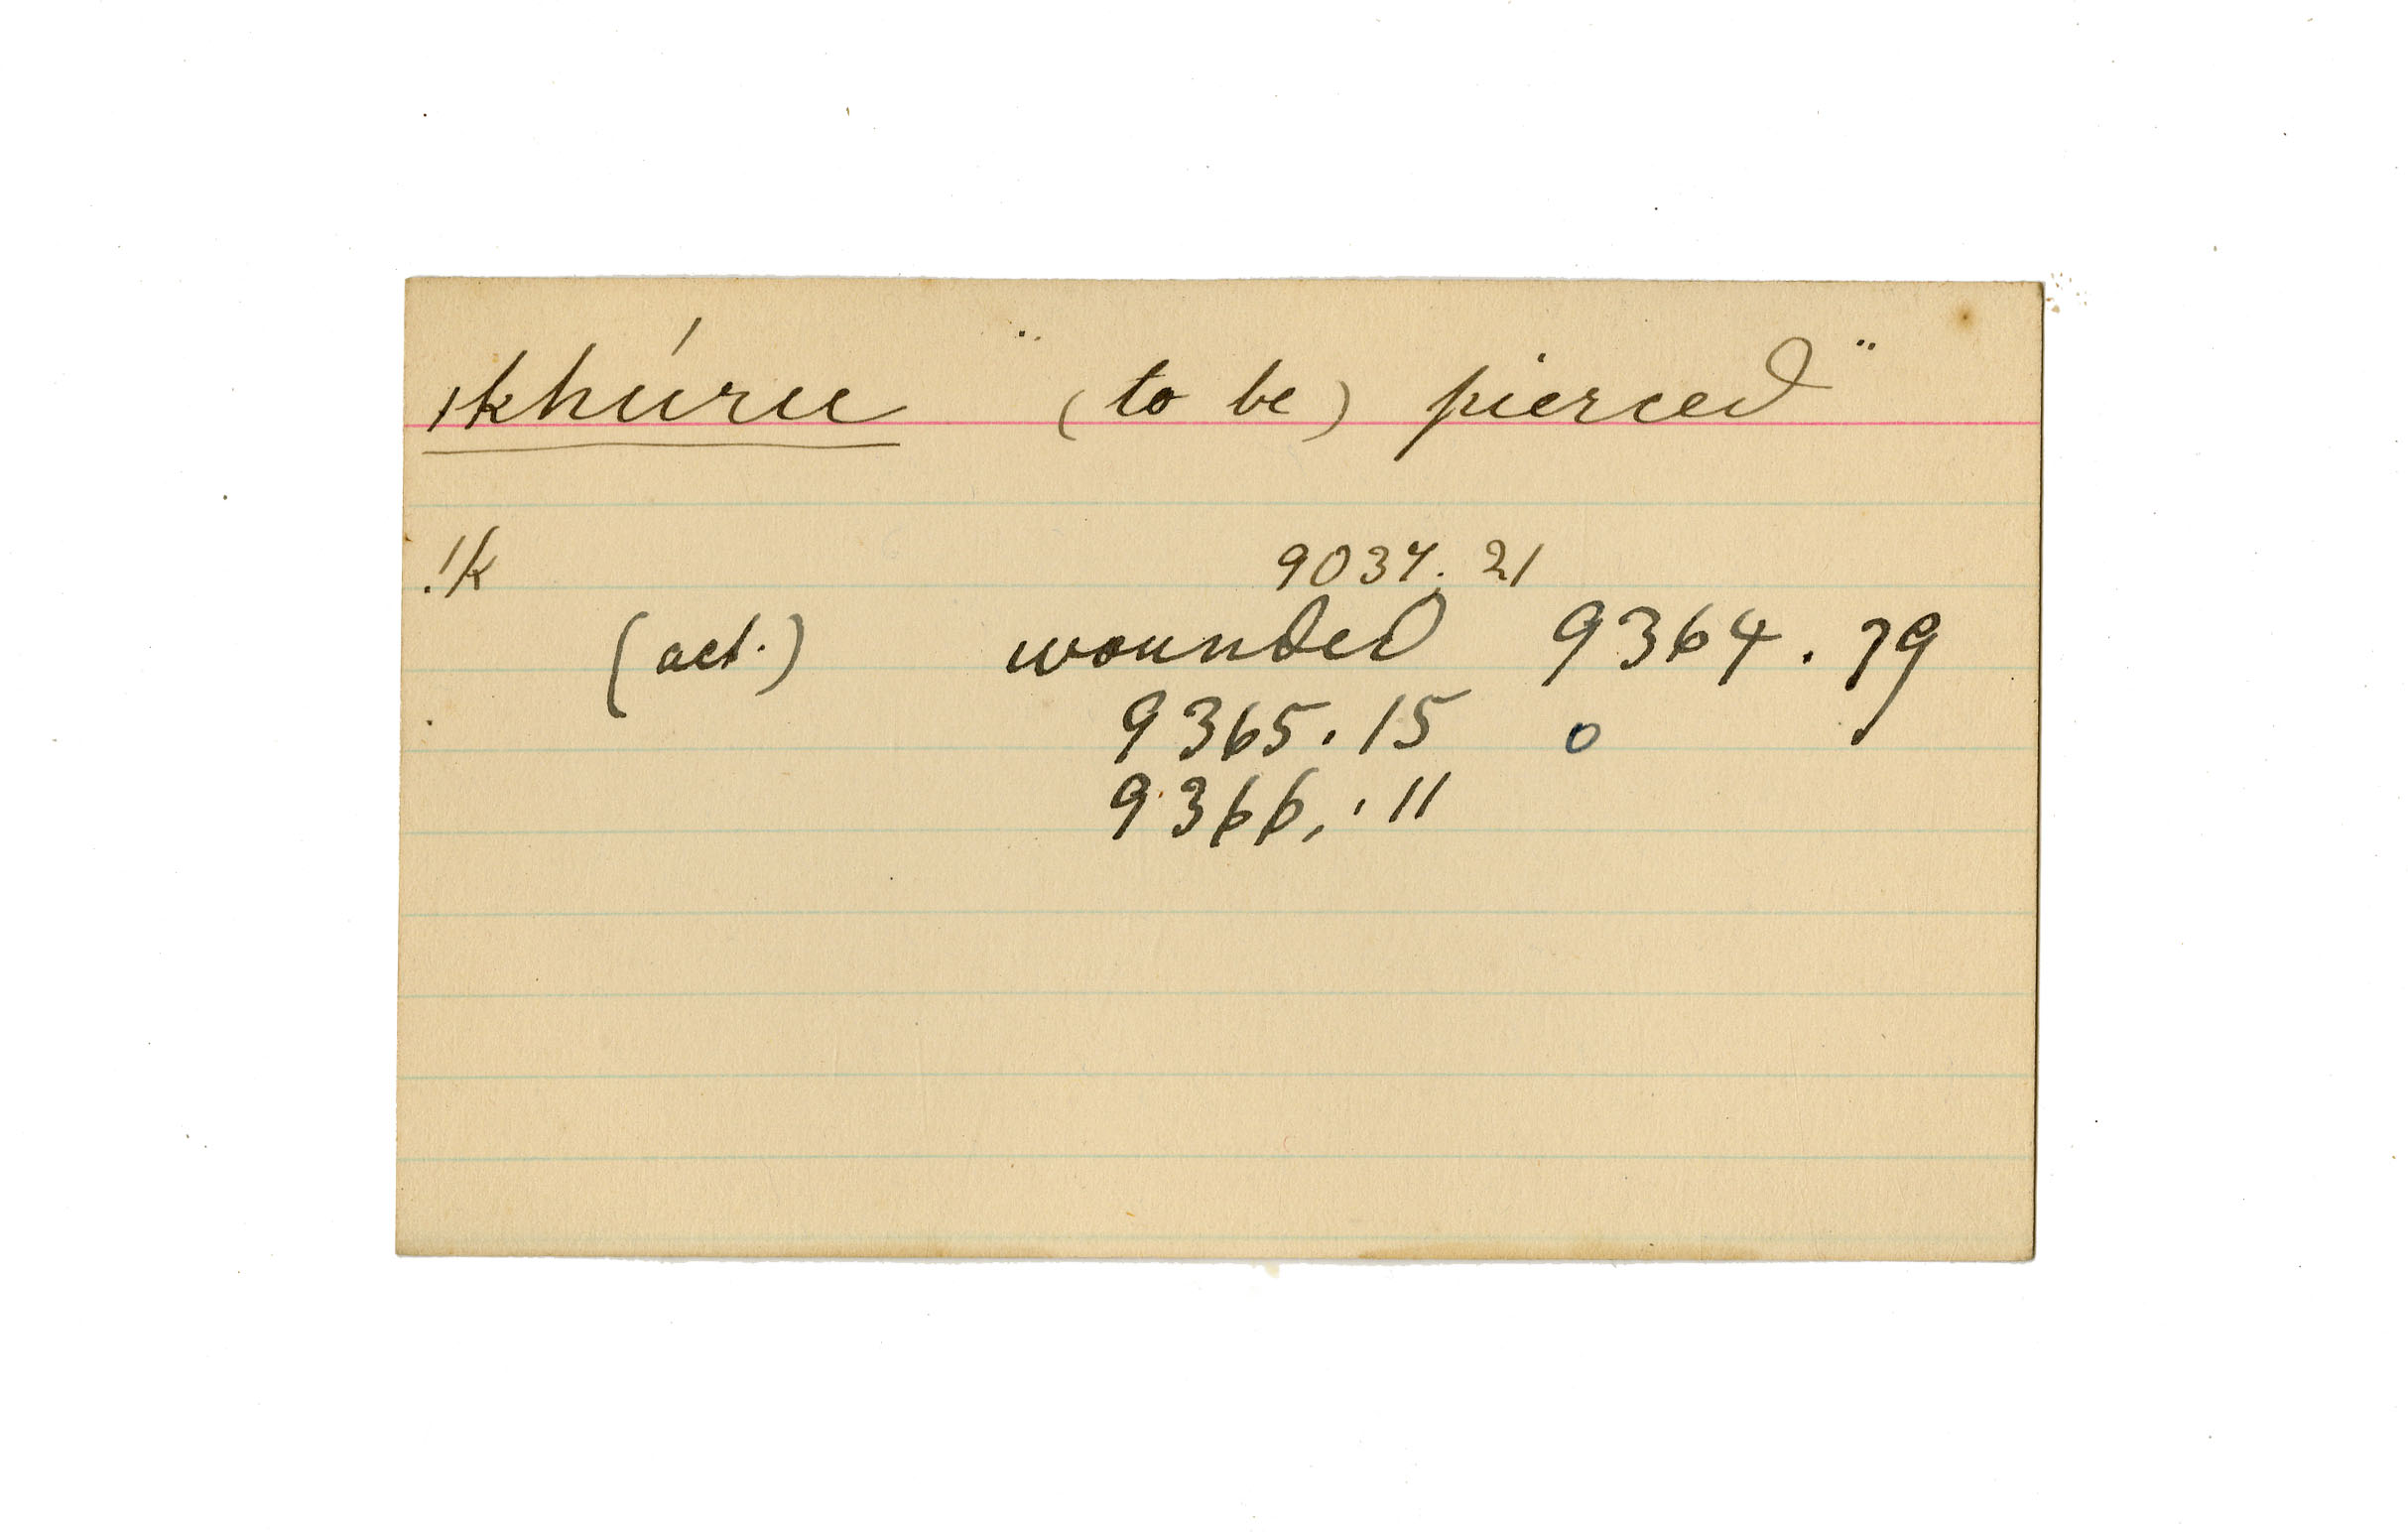 ıkhúru "(to be) pierced"
!k 9037. 21
(act.) wounded 9364. 79
9365. 15 o
9366. 11